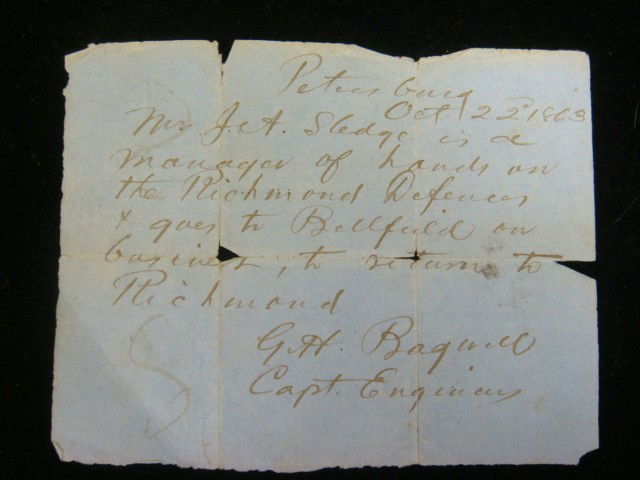 Petersburg
Oct. 22d 1863
Mr. J. A. Sledge is a
manager of hands on
the Richmond Defences
& goes to Bellfield on
business, to return to
Richmond
G. H. Bagwell
Capt. Engineers